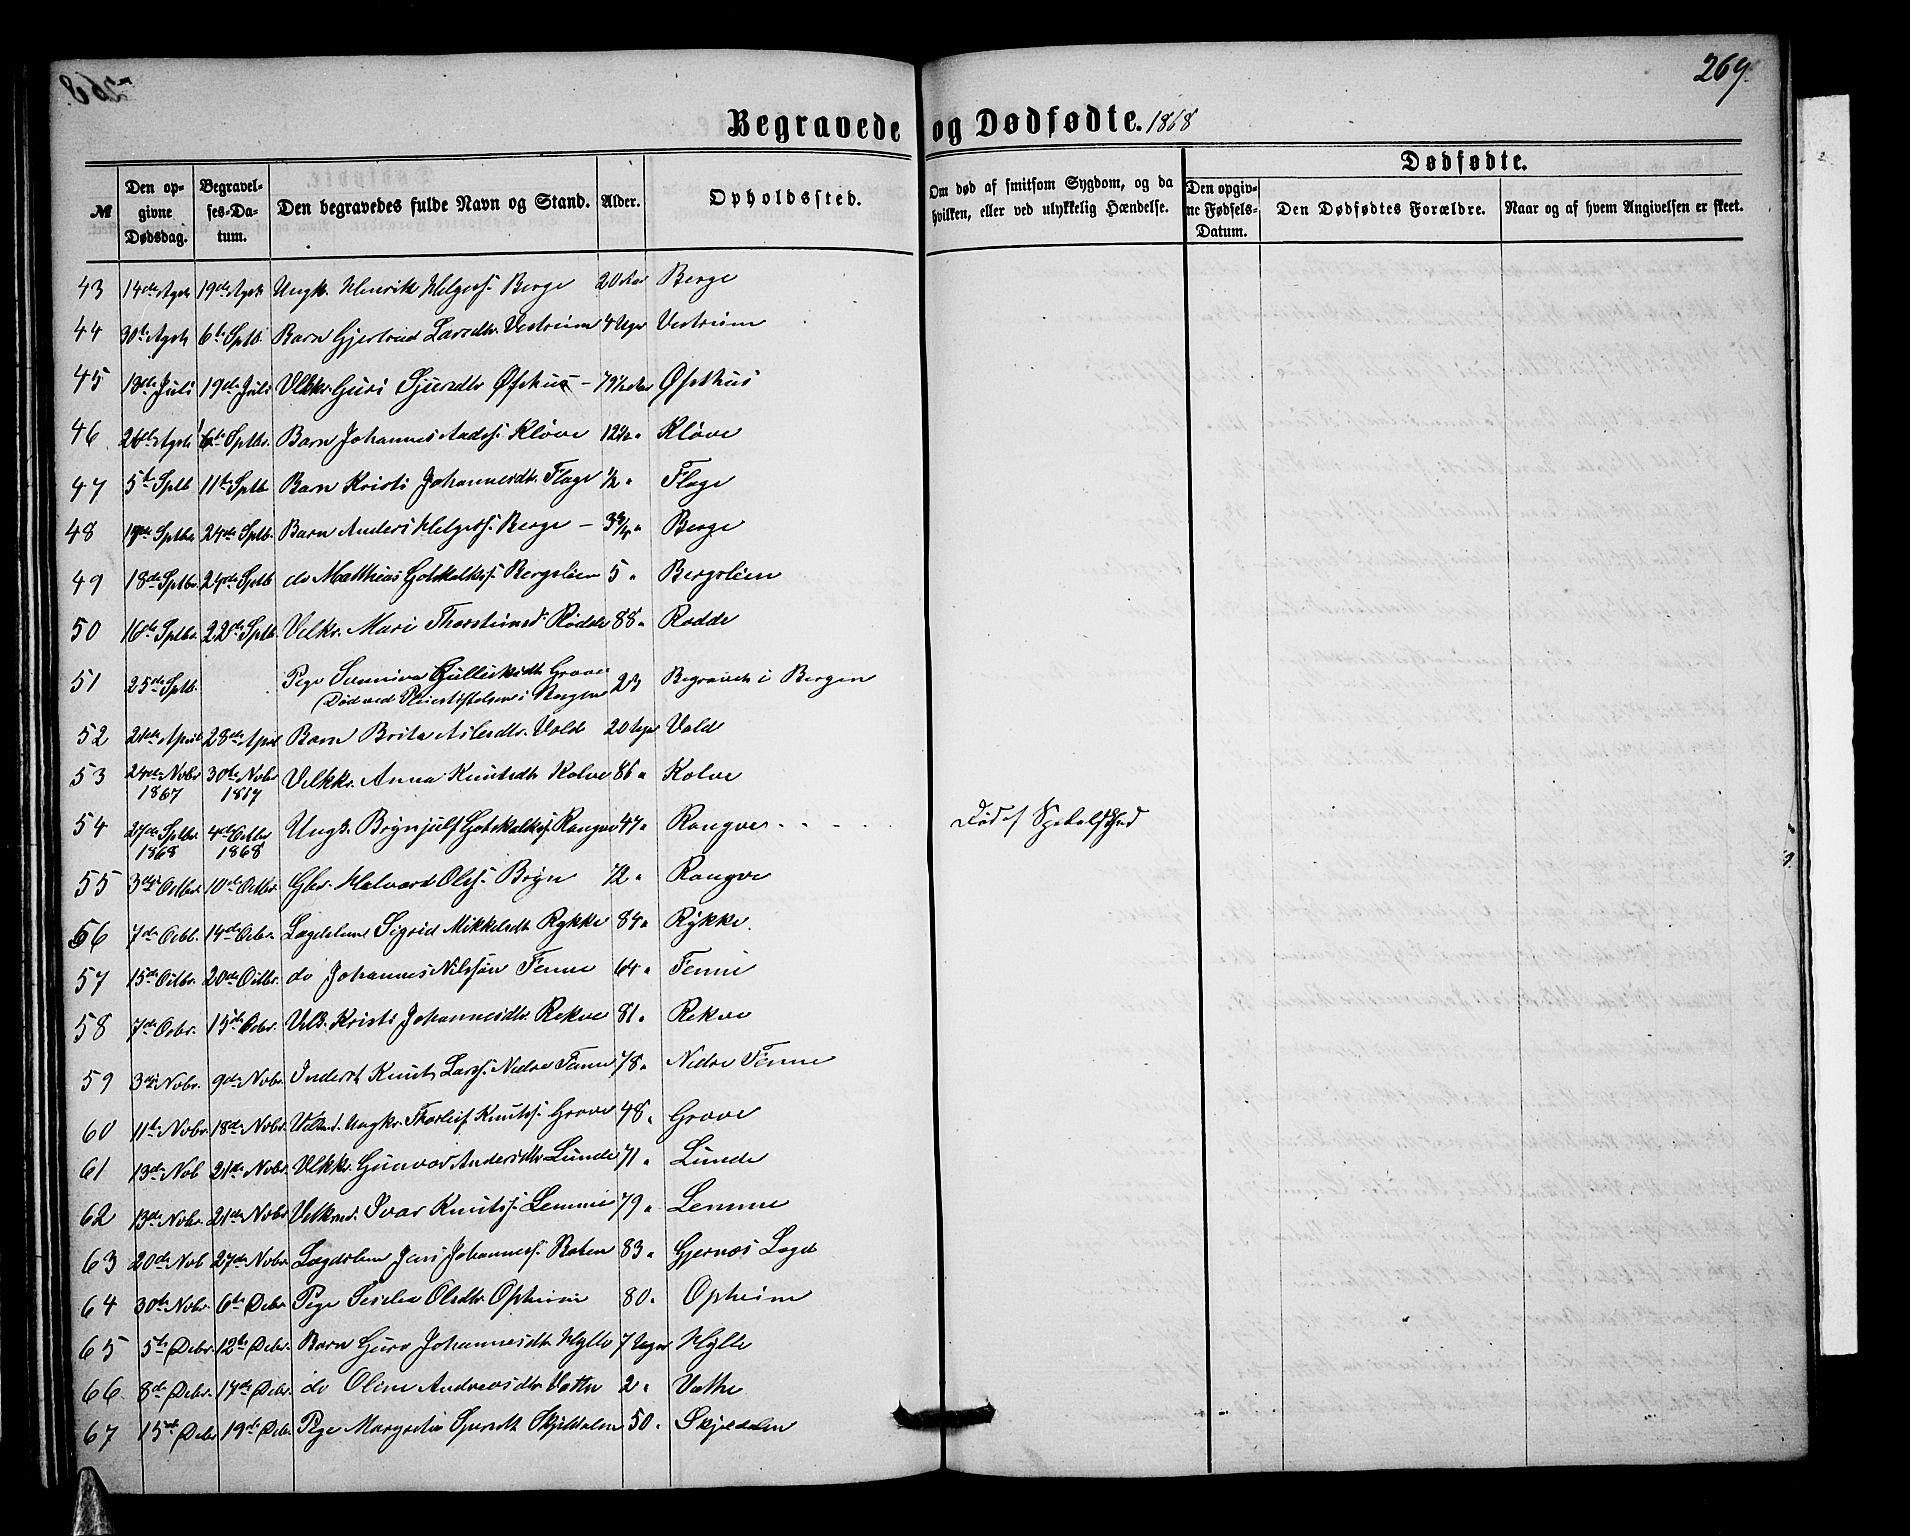 269.
Begravede og Dødfødte. 1868
№ | Den opgivne Dødsdag. | Begravelses-Datum. | Den begravedes fulde Navn og Stand. | Alder. | Opholdssted. | Om død af smitsom Sygdom, og da hvilken, eller ved ulykkelig Hændelse. | Dødfødte. | Den opgivne Fødsels-Datum. | Den Dødfødtes Forældre. | Naar og af hvem Angivelsen er skeet.
43 14de Agst 19de Agst Ungk. Henrik Helgess. Berge 20 Aar Berge
44 30te Agst 6te Sptb. Barn Gjertrud Larsdtr. Vestreim 4 Uger Vestreim
45 13de Juli 19de Juli Guri Sjursdtr Øfsthus – 79½ Aar Øfsthus
46 26de Agst 6te Sptbr. Barn Johannes Kløve 12½ " Kløve
47 5te Sptb 11te Sptb Barn Kristi Johannesdtr. Flage ½ " Flage
48 19de Sptbr 24de Sptb. Barn Anders Helgess. Berge – 3¾ " Berge
49 18de Sptbr. 24de Sptb do Matthias Gotskalkss. Bergslien 5 " Bergslien
50 16de Sptbr. 22de Sptb. Velkr. Mari Thorsteinsd. Rødde 88 " Rodde
51 25de Sptb. Pige Sunniva Gulleiksdtr Grove 23 Begravet i Bergen
(Død ved Pleiestiftelsen i Bergen
52 21de April 28de April Barn Brita Vold 20 Uger Vold
53 24de Nvbr 1867 30te Nvbr 1867 Velkkr. Anna Knutsdtr Kolve 86 " Kolve
54 27de Sptbr. 1868 4de Octbr 1868 Ungk. Brynjulf Gotskalkss. Rongve 47 " Rongve - - - - Død af Spedalskhed
55 3die Octbr. 10de Octbr. Gbr. Halvard Olss. Bryn 72 " Rongve
56 7de Octb. 14de Octbr. Lægdslem Sigrid Mikkelsdtr Rykke 84 " Rykke.
57 15de Octbr. 20de Octbr. do Johannes Nilssøn Fenne 64 " Fenne
58 7de Octbr. 15de Octbr. Kristi Johannesdtr. Rekve 81 " Rekve
59 3die Nvbr. 9de Nvbr. Inderst Knut Larss. Nedre Fenne 78 " Nedre Fenne
60 11te Nvbr. 18de Nvbr. Thorleif Knutss. Grove 48 " Grove
61 13de Nvb 21de Nvbr. Velkkr. Gunvor Andersdtr. Lunde 71 " Lunde
62 13de Nvbr. 21de Nvbr Velkmd. Ivar Knutss. Lemme 79 " Lemme
63 20de Nvb 27de Nvbr Lægdslem Jens Johanness. 83 " Gjernæs Lægd
64 30te Nvbr. 6te Debr. Pige Sesilia Olsdtr. Opheim 80 " Opheim
65 5te Debr. 12te Debr. Barn Guro Johannesdtr. Hylle 7 Uger Hylle
66. 8de Debr. 14de Debr. do Oline Andreasdtr. 2 "
67 15de Debr 19de Debr. Pige Margretha Sjursdtr Skjeldalen 50 " Skjeldalen